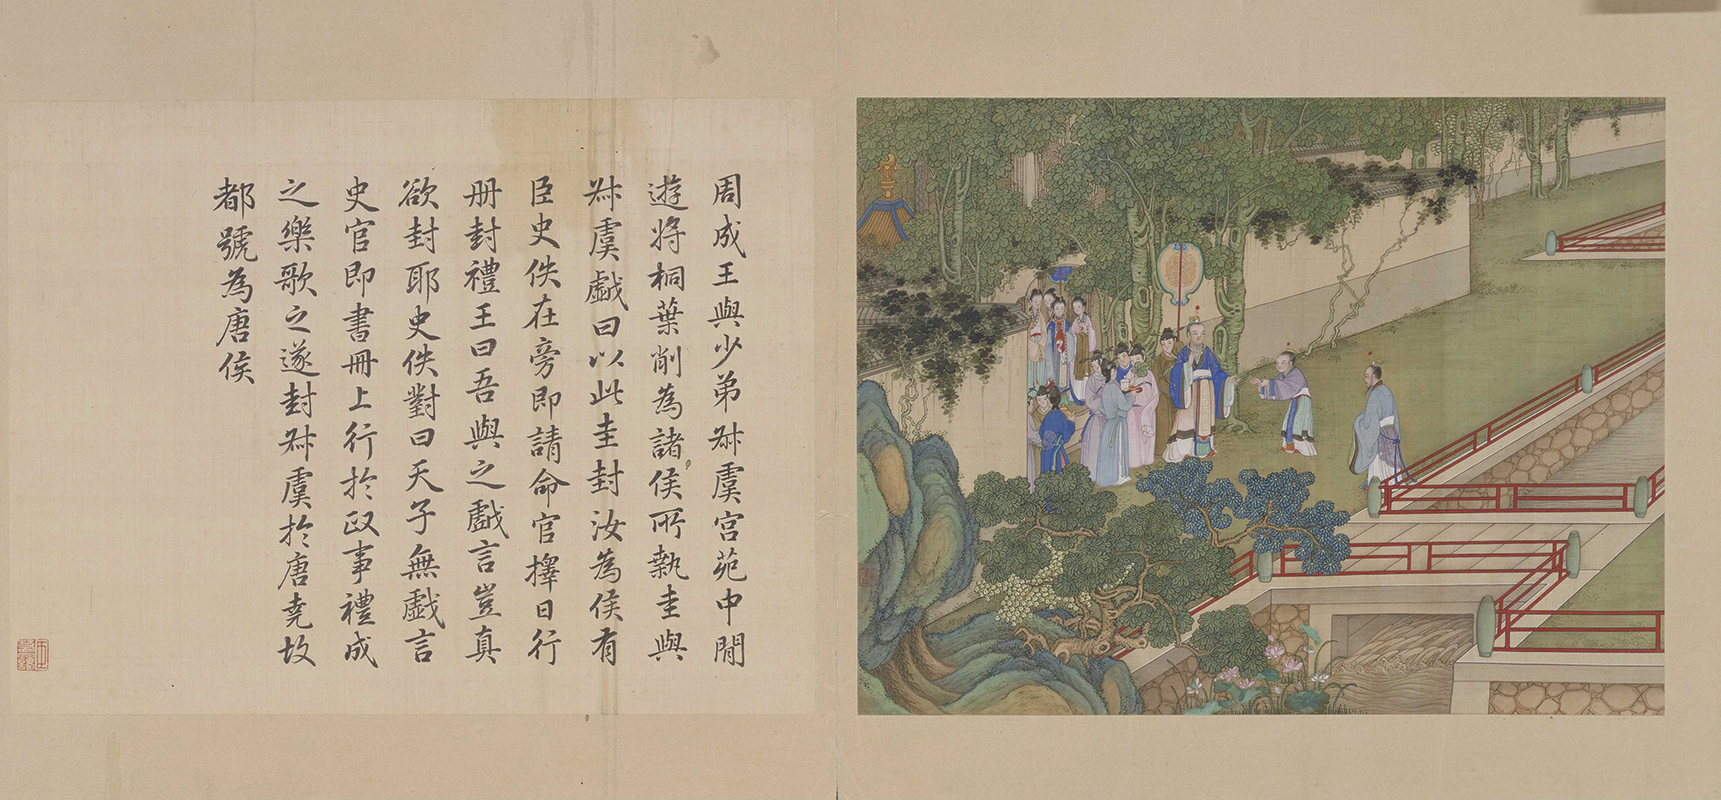 周成王與少弟叔虞宮苑中閒
遊將桐葉削為諸侯所執圭與
叔虞戲曰以此圭封汝為侯有
臣史佚在旁即請命官擇日行
冊封禮王曰吾與之戲言豈真
欲封耶史佚對曰天子無戲言
史官即書冊上行於政事禮成
之樂歌之遂封叔虞於唐堯故
都號為唐侯